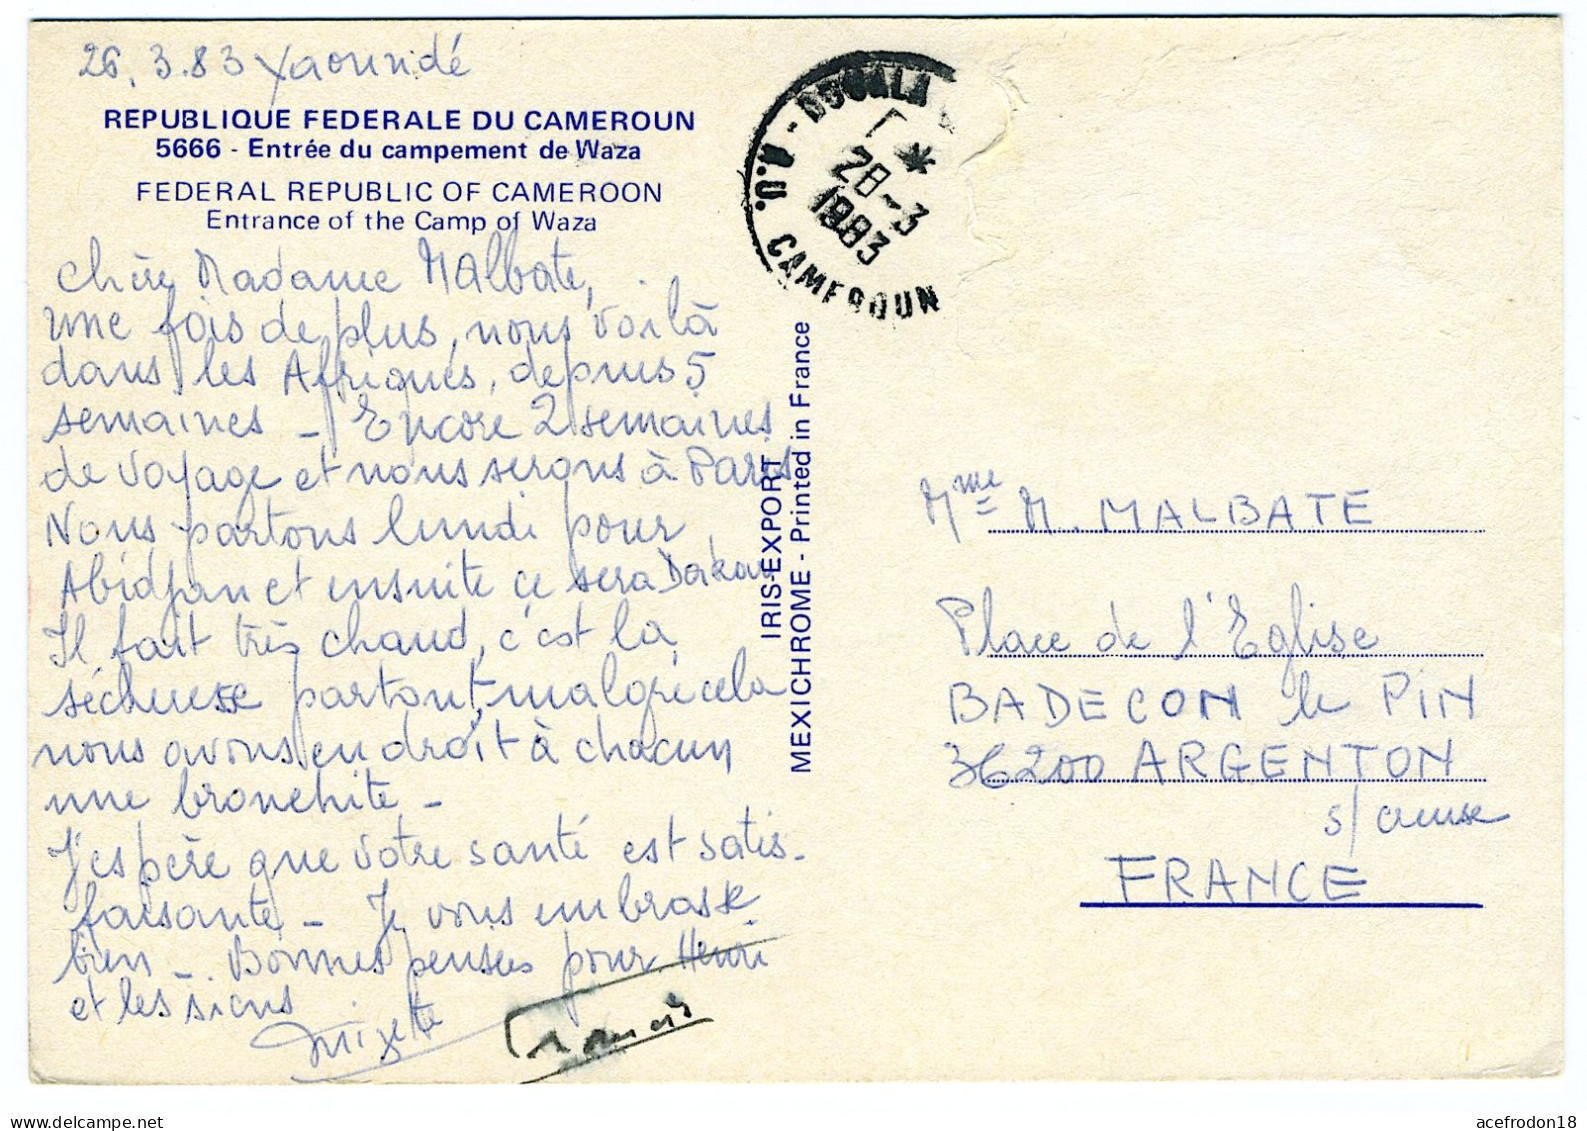 26.3.83 Yaoundé
REPUBLIQUE FEDERALE DU CAMEROUN
5666 - Entrée du campement de Waza
FEDERAL REPUBLIC OF CAMEROON
Entrance of the Camp of Waza
Chère Madame MAlbate,
une fois de plus, nous voilà
dans les Afriques, depuis 5
semaines - Encore 2 semaines
de voyage et nous serons à Paris
Nous partons lundi pour
Abidjan et ensuite ce sera Dakar
Il fait très chaud, c'est la
sécheresse partout, malgré cela
nous avons eu droit à chacun
une bronchite -
J'espère que votre santé est satis-
faisante - Je vous embrasse
bien -. Bonnes pensées pour Henri
et les siens
Francis
IRIS-EXPORT
MEXICHROME - Printed in France
DOUALA
28-3
1983
R.U. CAMEROUN
Mme M. MALBATE
Place de l'Eglise
BADECON le PIN
36200 ARGENTON
s/ Creuse
FRANCE
acefrodon18